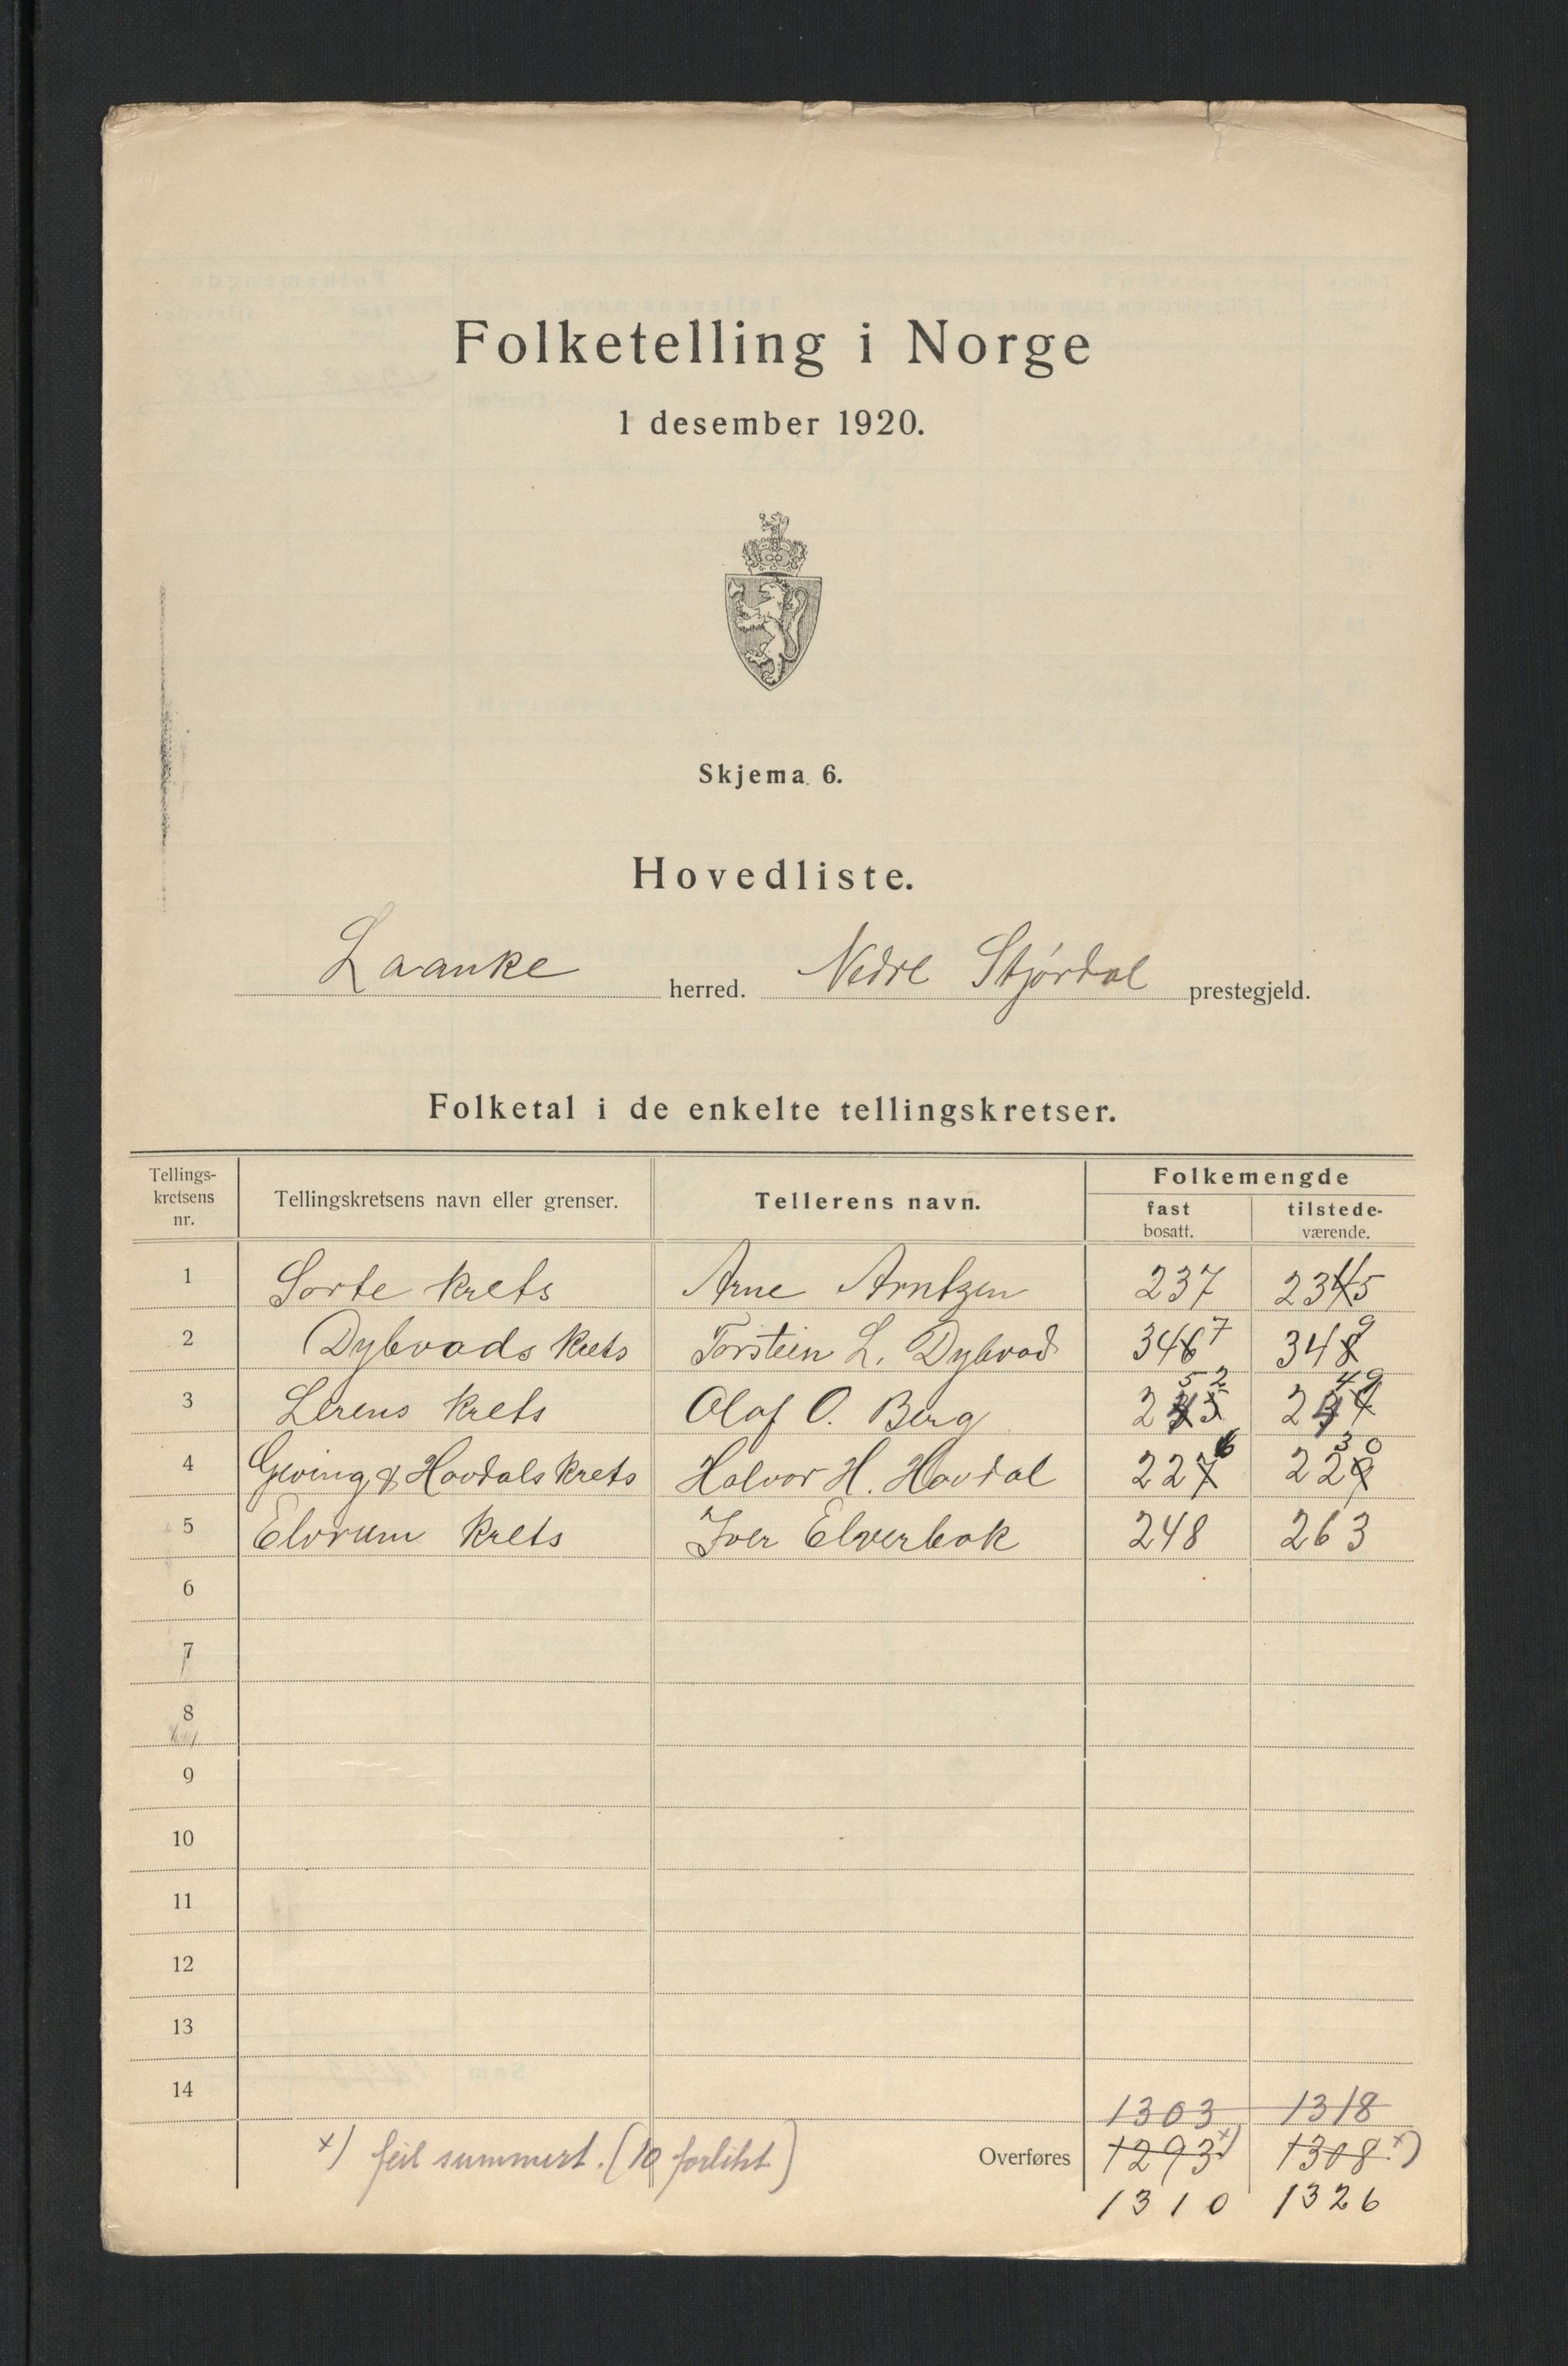 Folketelling i Norge
1 desember 1920.
Skjema 6.
Hovedliste.
Laanke herred. Nedre Stjørdal prestegjeld.
Folketal i de enkelte tellingskretser.
Tellings-
kretsens
nr.
Tellingskretsens navn eller grenser.
Tellerens navn.
Folkemengde
fast
bosatt.
tilstede-
værende.
1 Sorte krets Arne Arntzen 237 2345
2 Dybvads krets Torstein L. Dybvad 3467 3489
3 Lerens krets Olaf O. Berg 252 249
4 Geving & Hovdals krets Halvor H. Hovdal 2276 229 30
5 Elvrum krets Iver Elverbak 248 263
6
7
8
9
10
11
12
13
14
1303 1318
x) feil summert. (10 forlikt) Overføres 1293 x) 1308 x)
1310 1326